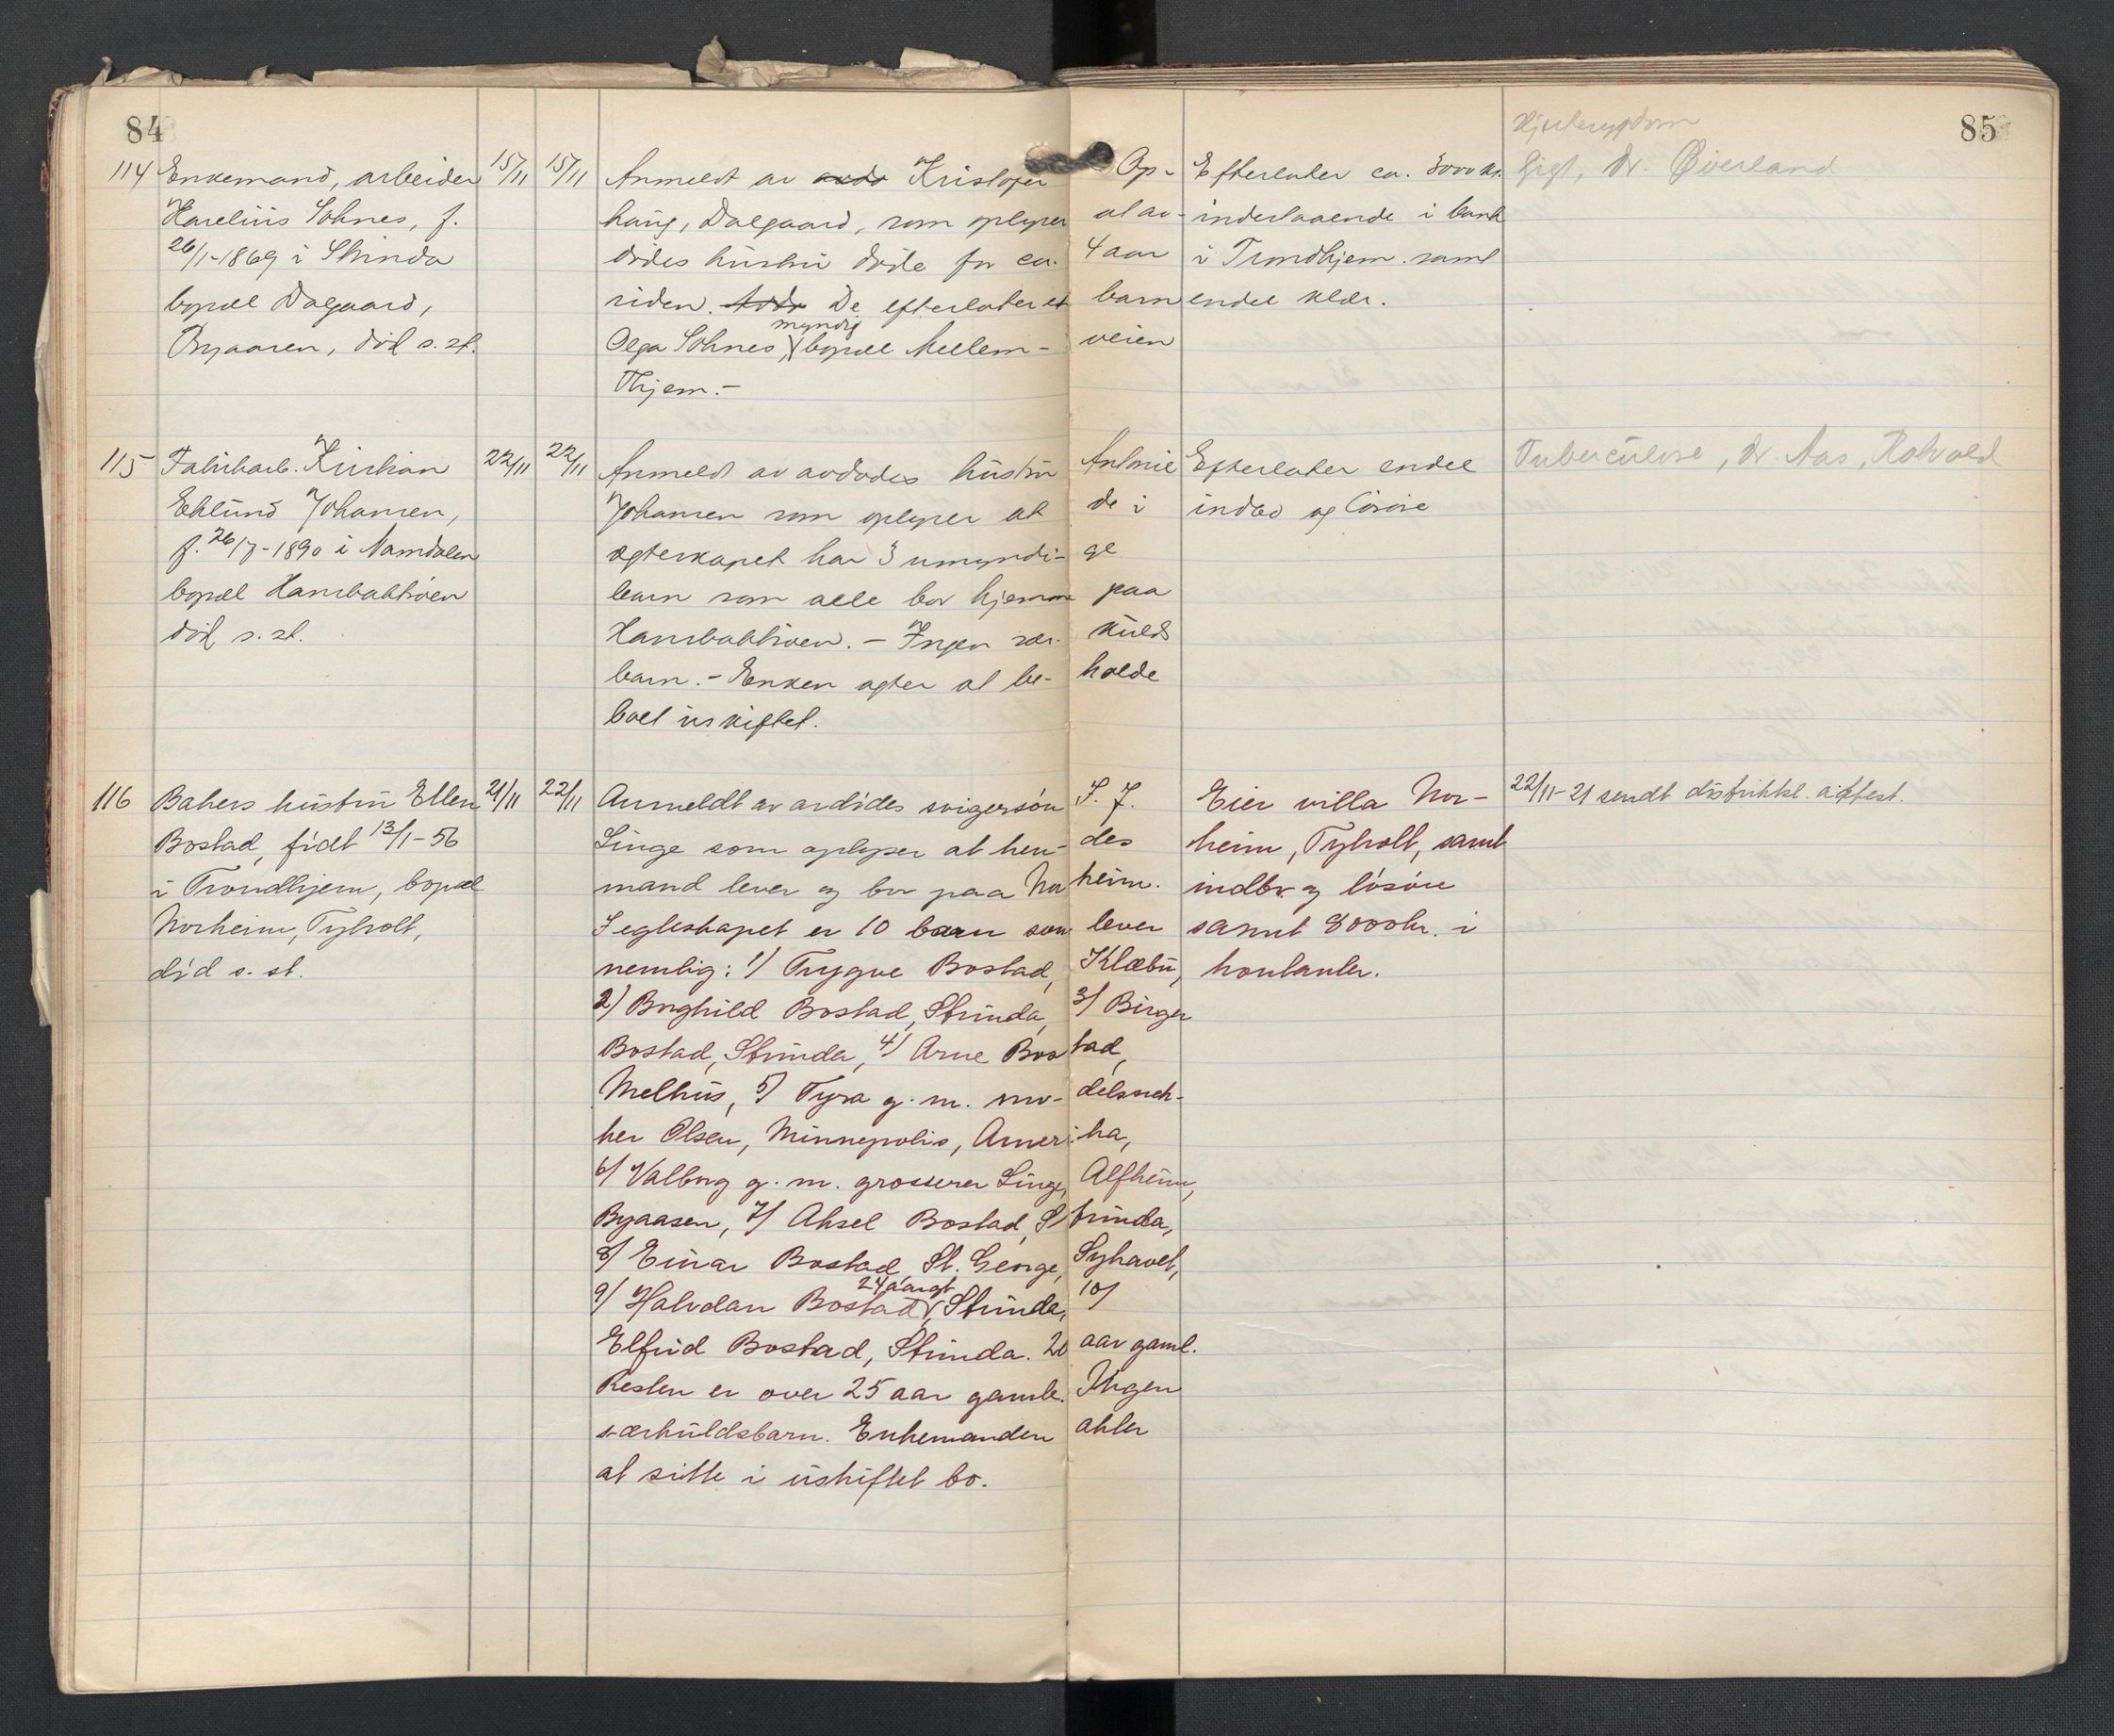 84
85
114 Enkemand, arbeider 15/11 15/11 Anmeldt av avdø Kristofer Op-
Karelius Sohnes, f. haug, Dalgaard, som oplyser at av-
26/1-1869 i Strinda dødes hustru døde for ca. 4 aar
bopæl Dalgaard, siden. Avdø De efterlater et barn
myndig
Byaasen, død s. st. Olga Sohnes, bopæl Mellem- veien
Thjem.-
Efterlater ca. 3000 kr.
indestaaende i bank
i Trondhjem samt
endel klær.
Hjertesygdom
Gigt, Dr. Øverland
115 Fabrikarb. Kristian 22/11 22/11 Anmeldt av avdødes hustru Antonie
Eklund Johansen, Johansen som oplyser at de i
f. 26/7-1890 i Namdalen egteskapet har 3 umyndi- ge
bopæl Hansbakhøen barn som alle bor hjemme paa
død s. st. Hansbakhøen. - Ingen sær- kulds
barn. - Enken agter at be- holde
boet uskiftet.
Efterlater endel
indbo og løsøre
Tuberculose, Dr. Aas, Rotvold
116 Bakers hustru Ellen 21/11 22/11 Anmeldt av avdødes svigersøn S. J.
Bostad, født 13/1-56 Linge som oplyser at hen- des
i Trondhjem, bopæl mand lever og bor paa Nor heim.
Norheim, Tyholt, I egteskapet er 10 barn som lever
død s. st. nemlig: 1) Trygve Bostad, Klæbu,
2) Borghild Bostad, Strinda, 3) Birger
Bostad, Strinda, 4) Arne Bos tad,
Melhus, 5) Tyra g. m. sne- delssnek-
ker Olsen, Minnepolis, Ameri- ka,
6) Valborg g. m. grosserer Linge, Alfheim,
Byaasen, 7) Aksel Bostad, S trinda,
8) Einar Bostad, St. George, Syhavet,
24 aargl
9) Halvdan Bostad, Strinda, 10)
Elfrid Bostad, Strinda. 20 aar gaml.
Resten er over 25 aar gamle. Ingen
særkuldsbarn. Enkemanden akter
at sitte i uskiftet bo.
Eier villa Nor-
heim, Tyholt, samt
indbo og løsøre
samt 8000 kr. i
kontanter.
22/11-21 sendt distriktsl. attest.